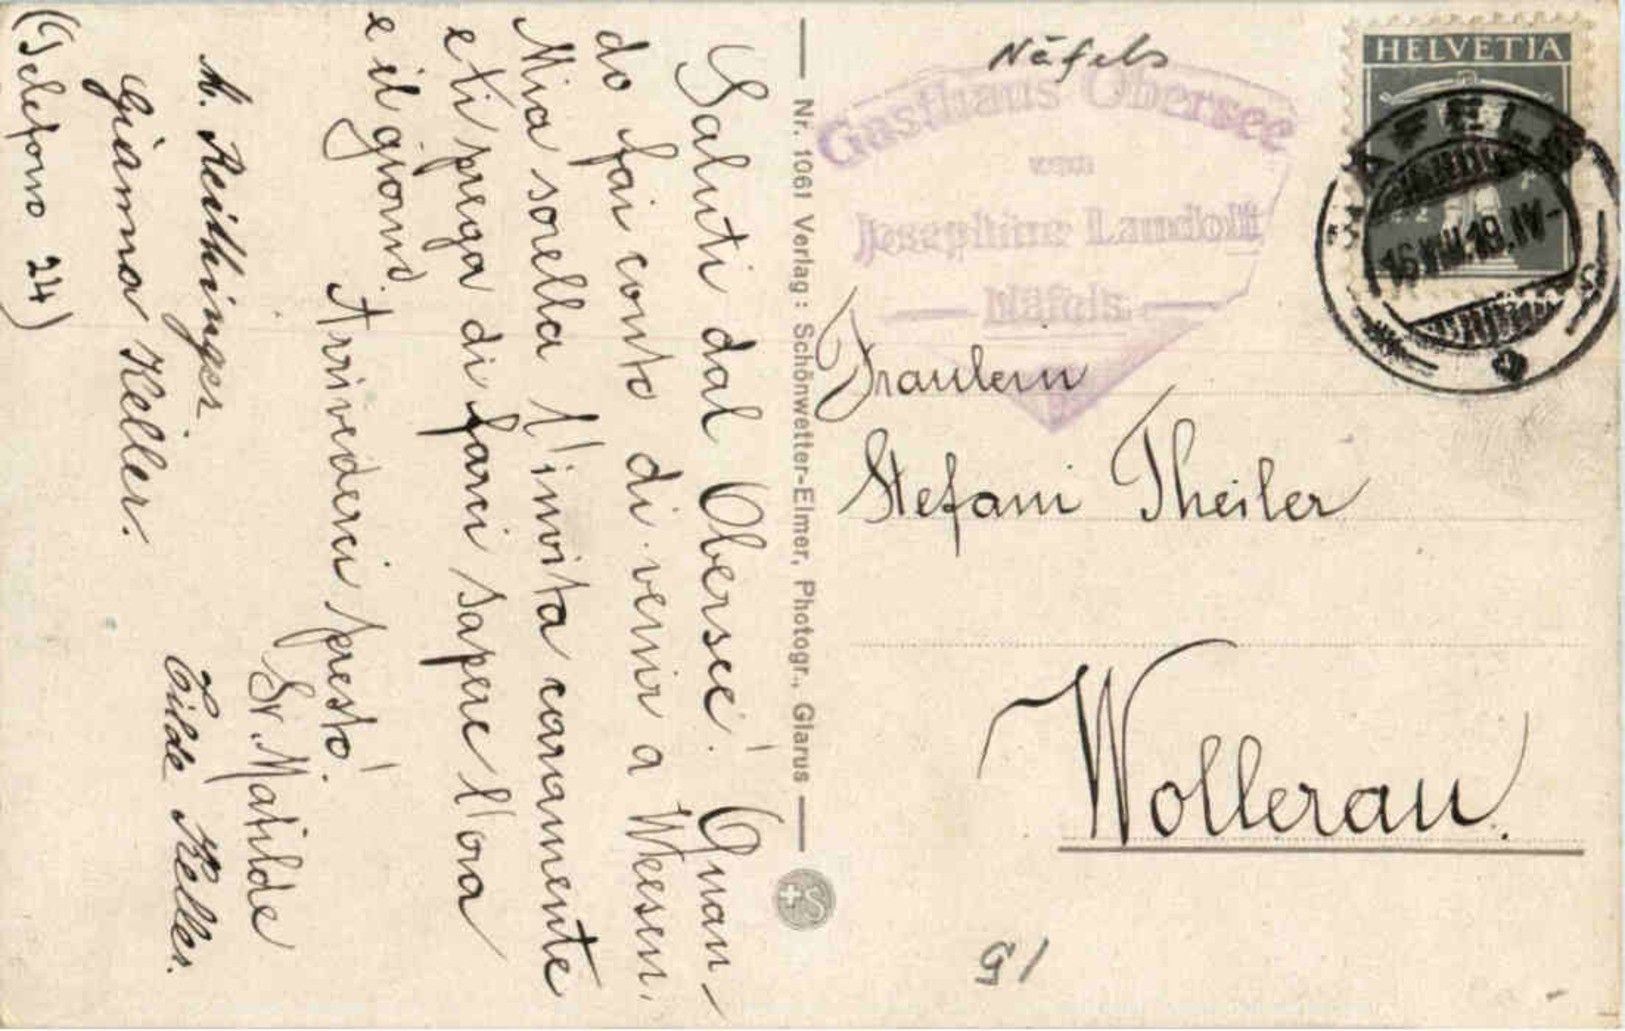 Saluti dal Obersee! Quan-
do fai conto di venir a Weesen.
Mia sorella t'invita caramente
e ti prega di farci sapere l'ora
e il giorno.
Arrivederci presto!
Sr. Matilde
M. Reithinger
Tilde Keller.
Gianna Keller.
(Telefono 24)
Nr. 1061 Verlag: Schönwetter-Elmer, Photogr., Glarus
S
Näfels
Gasthaus Obersee
von
Josephine Landolt
Näfels
HELVETIA
NÄFELS
Fraulein
Stefani Theiler
Wollerau.